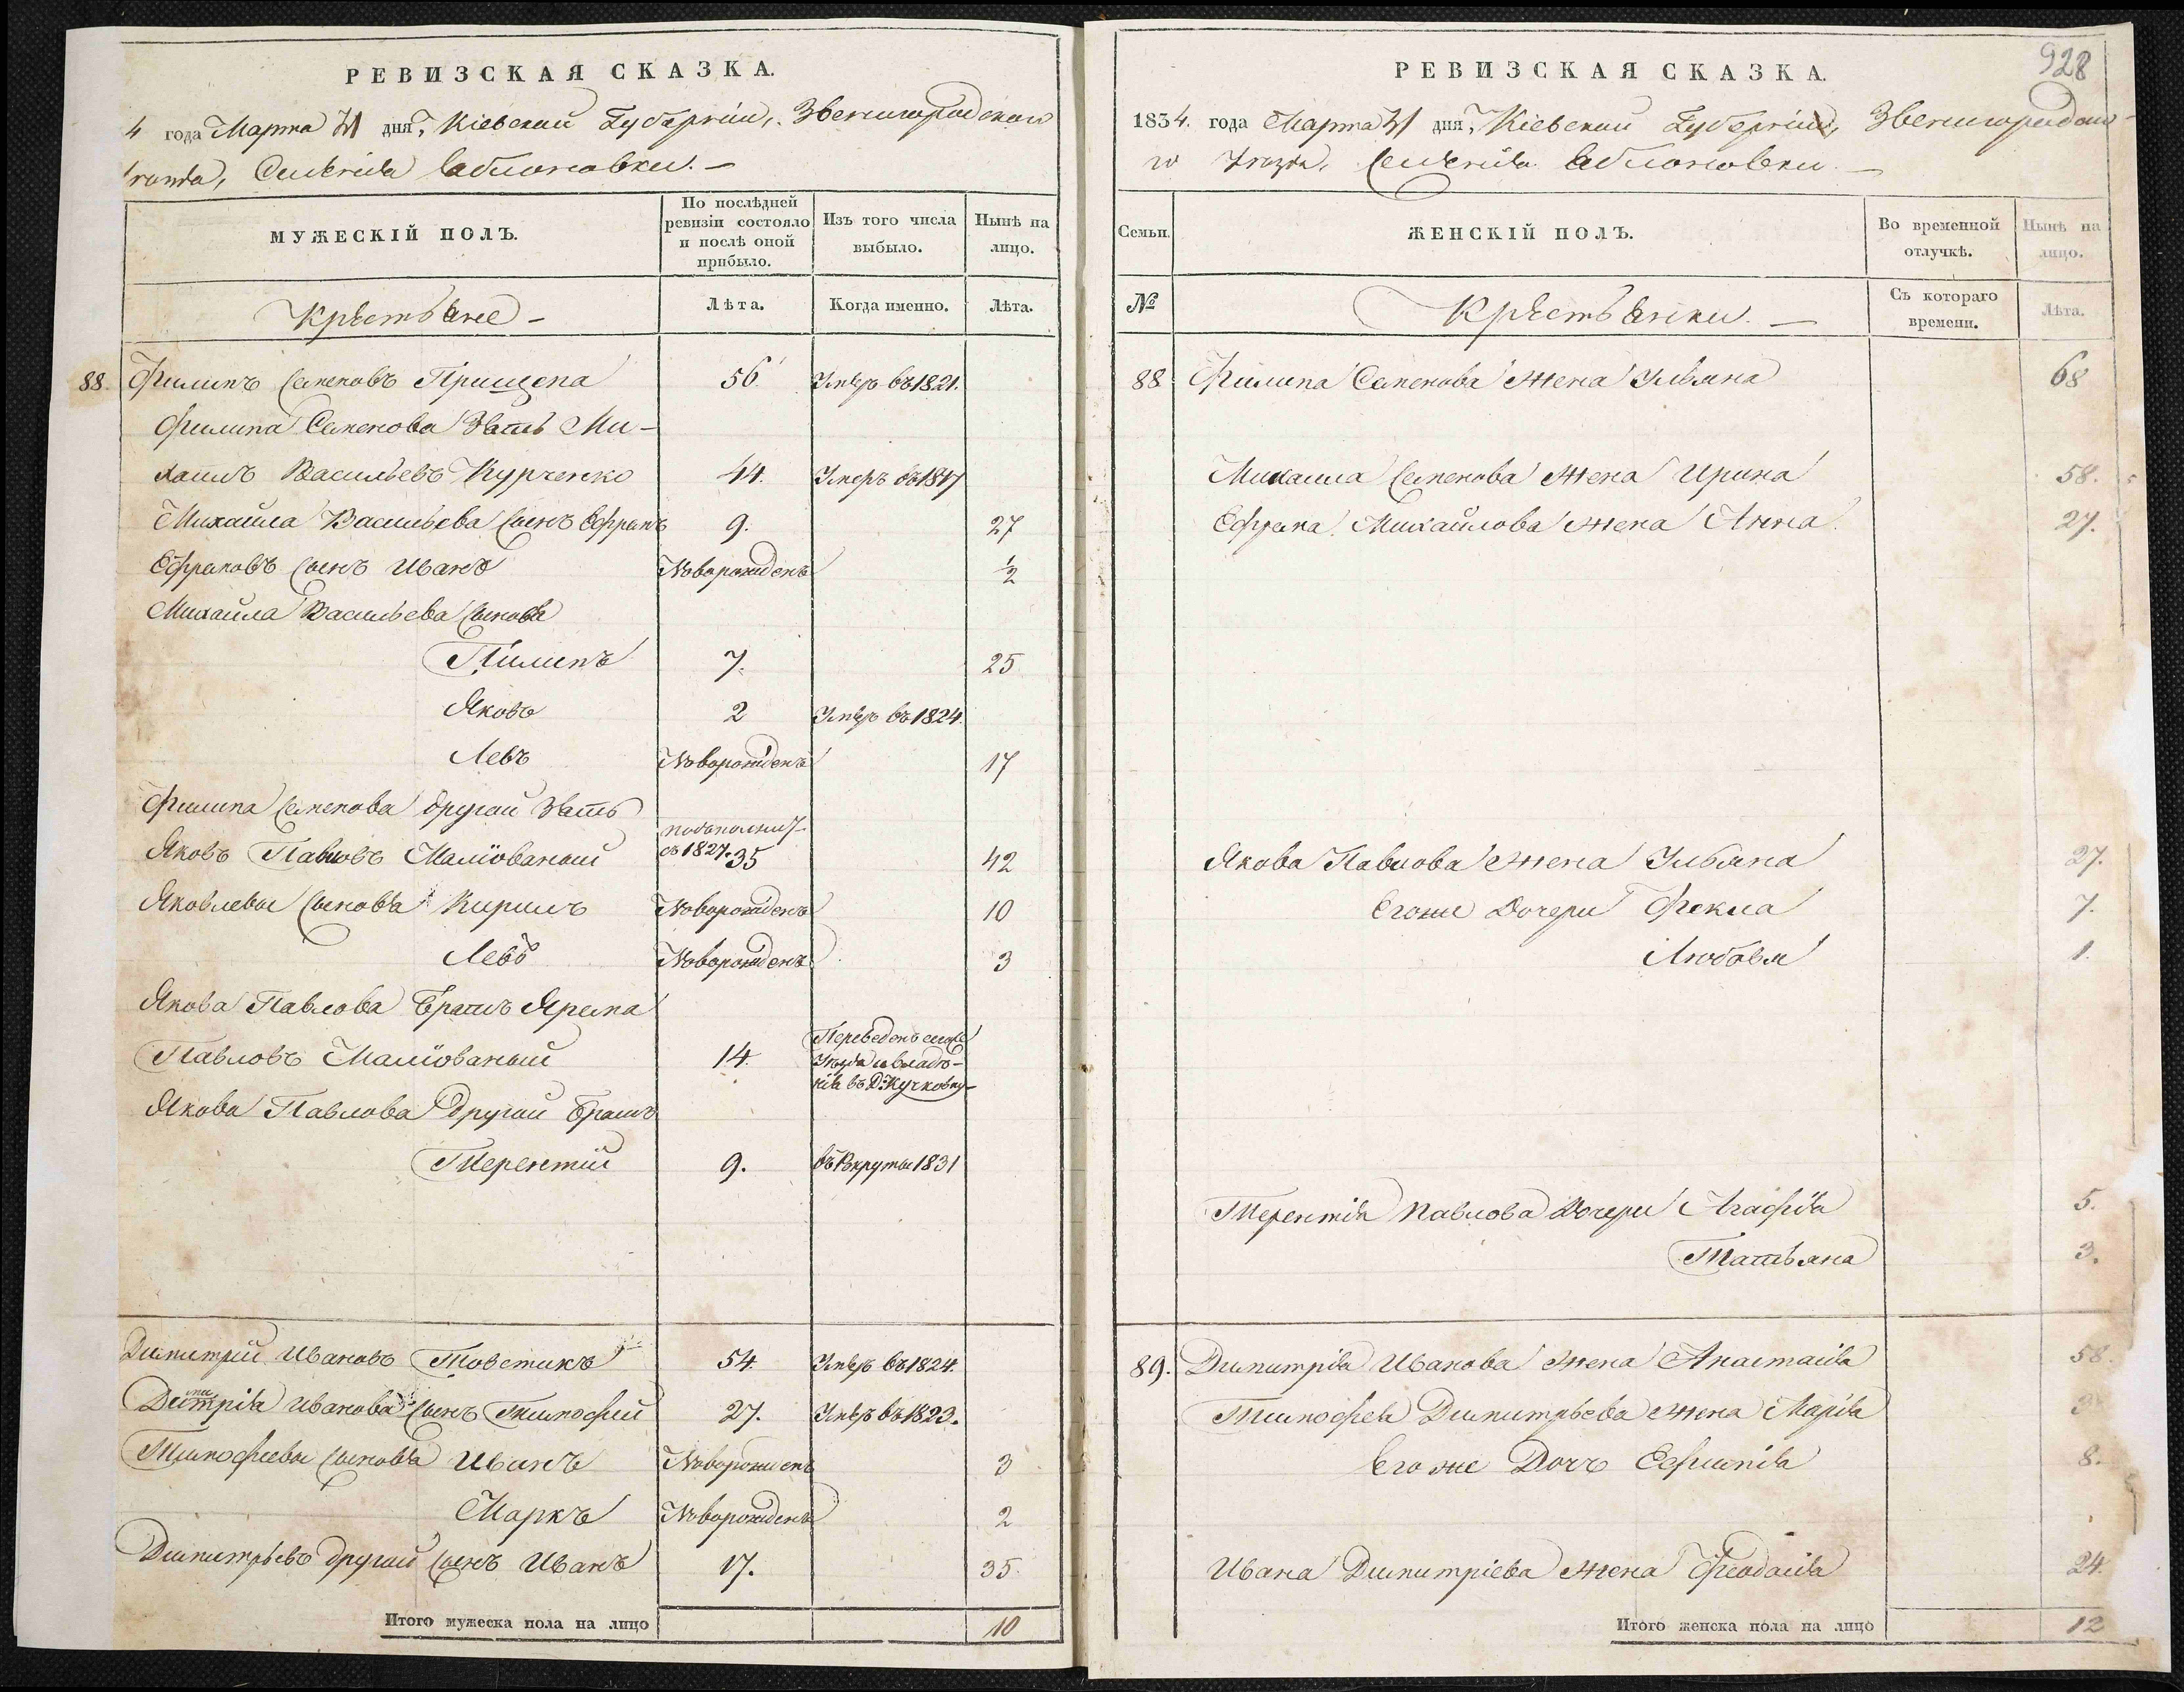 РЕВИЗСКАЯ СКАЗКА.
4 года Марта 31 дня, Кіевской Губерніи, Звенигородскаго
Селенія Яблоновки. —
МУЖЕСКІЙ ПОЛЪ.
По послѣдней
ревизіи состояло
и послѣ оной
прибыло.
Изъ того числа
выбыло.
Нынѣ на
лицо.
Крѣстьяне —
Лѣта.
Когда именно.
Лѣта.
88. Филипъ Семеновъ Прищепа 56. Умеръ въ 1821.
Филипа Семенова Зять Ми-
хаилъ Васильевъ Курченко 44. Умеръ въ 1817
Михайла Васильева Сынъ Ефрымъ 9. 27
Ефрыновъ Сынъ Иванъ Новорожденъ ½
Михаила Васильева Сыновья
Пилипъ 7. 25
Яковъ 2 Умеръ въ 1824.
Левъ Новорожденъ 17
Филипа Семенова другой Зять
Яковъ Павловъ Малюваный съ 1827. 35 42
Яковлевы Сыновья Кирилъ Новорожденъ 10
Левъ Новорожденъ 3
Якова Павлова братъ Ярема
Павловъ Малюваный 14. Переведенъ
Уезда владѣ-
нія въ Д. Кучковку
Якова Павлова Другой братъ
Терентій 9. въ Рекруты 1831
Димитрій Ивановъ Товстикъ 54. Умеръ въ 1824.
Дмитрія Иванова Сынъ Тимофей 27. Умеръ въ 1823.
Тимофеевы Сыновья Иванъ Новорожденъ 3
Маркъ Новорожденъ 2
Димитрьевъ другой Сынъ Иванъ 17. 35.
Итого мужеска пола на лицо 10
928
РЕВИЗСКАЯ СКАЗКА.
1834. года Марта 31 дня, Кіевской Губерніи, Звенигородска-
го Уезда, Селенія Яблоновки. —
Семьи.
ЖЕНСКІЙ ПОЛЪ.
Во временной
отлучкѣ.
Нынѣ на
лицо.
№
Крѣстьянки. —
Съ котораго
времени.
Лѣта.
88 Филипа Семенова жена Ульяна 68
Михаила Семенова жена Ирина 58.
Ефрема Михайлова жена Анна 27.
Якова Павлова жена Ульяна 27.
Егоже Дочери Фекла 7.
Любовя 1.
Терентія Павлова Дочери Агафія 5.
Татьяна 3.
89. Димитрія Иванова жена Анастасія 58.
Тимофея Димитрьева жена Марія
Егоже Дочъ Ефимія 8.
Ивана Димитріева жена Феодосія 24.
Итого женска пола на лицо 12